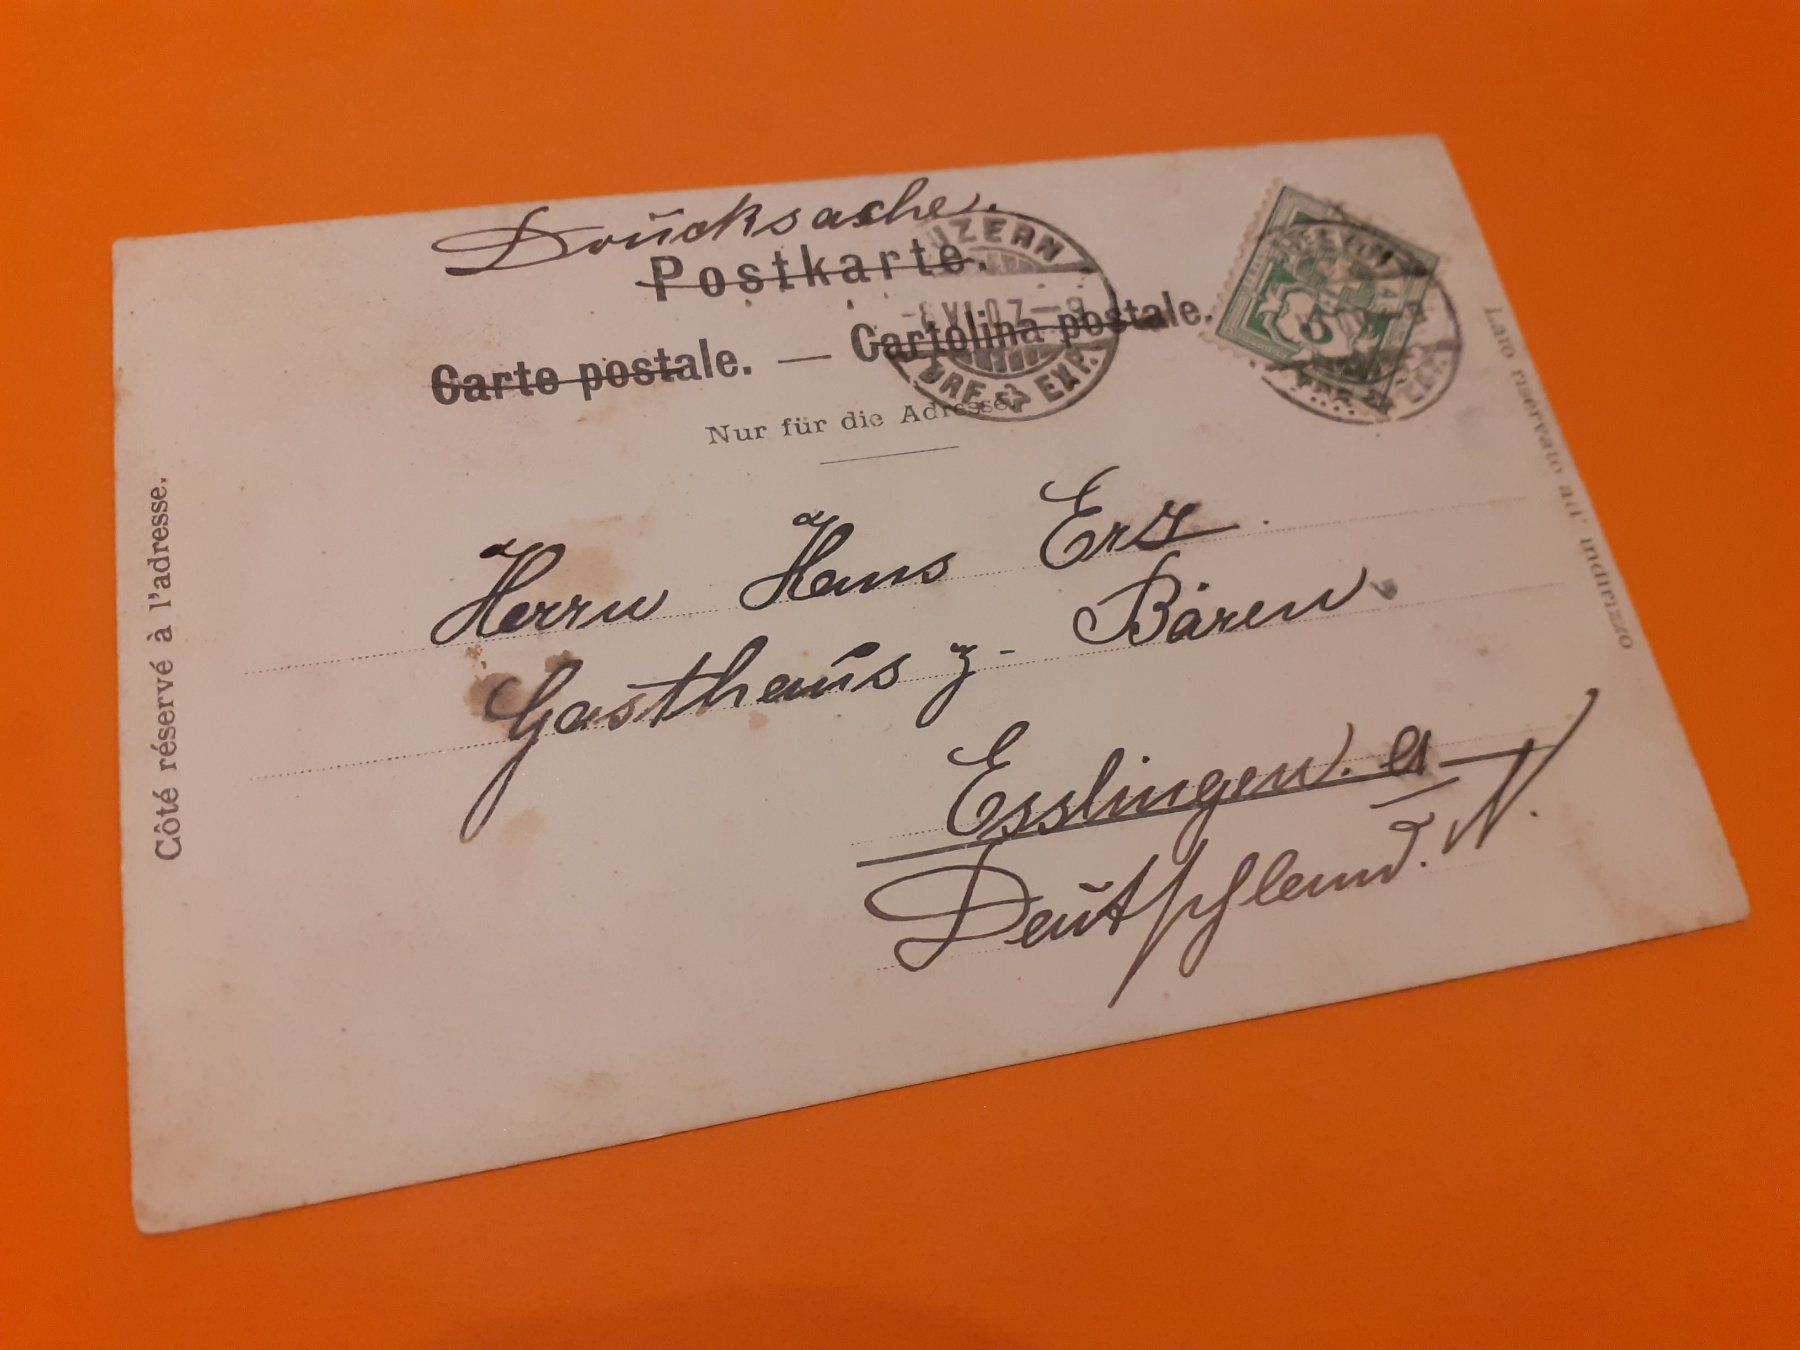 Drucksache.
Postkarte.
Carte postale. — Cartolina postale.
Nur für die Adresse.
LUZERN
-8 VI.07-8
BRF. EXP.
5
Côté réservé à l'adresse.
Lato riservato all' indirizzo
Herrn Hans Erz.
Gasthaus z. Bären
Esslingen. a
N.
Deutschland.